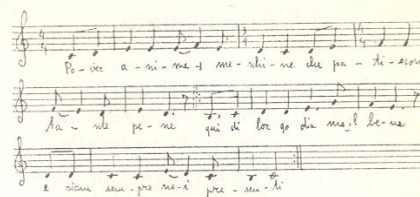 Po-vere a-ni-me me-schi-ne che pa-ti-scon
ta-nte pe-ne qui di loc go dia mo il be-ne
e siam sem-pre no-i pre-sen-ti